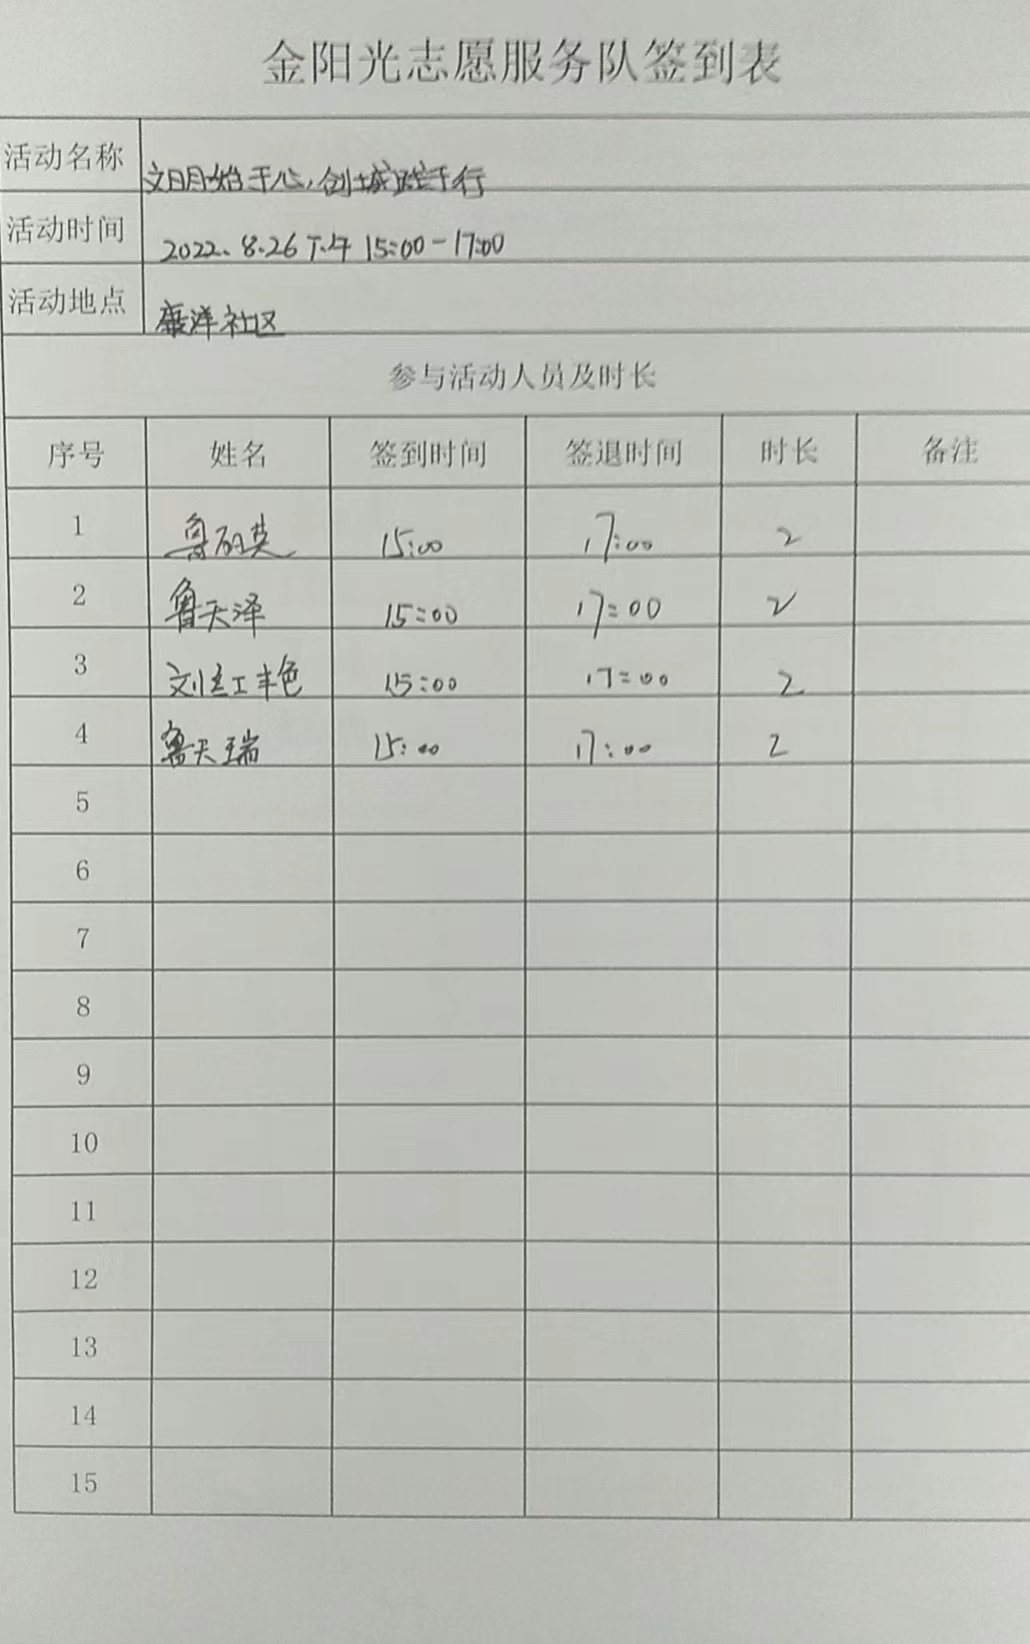 金阳光志愿服务队签到表
活动名称 文明始于心,创城践于行
活动时间 2022.8.26下午 15:00-17:00
活动地点 康洋社区
参与活动人员及时长
序号 姓名 签到时间 签退时间 时长 备注
1 鲁 英 15:00 17:00 2
2 鲁天泽 15:00 17:00 2
3 刘红艳 15:00 17:00 2
4 鲁天瑞 15:00 17:00 2
5
6
7
8
9
10
11
12
13
14
15